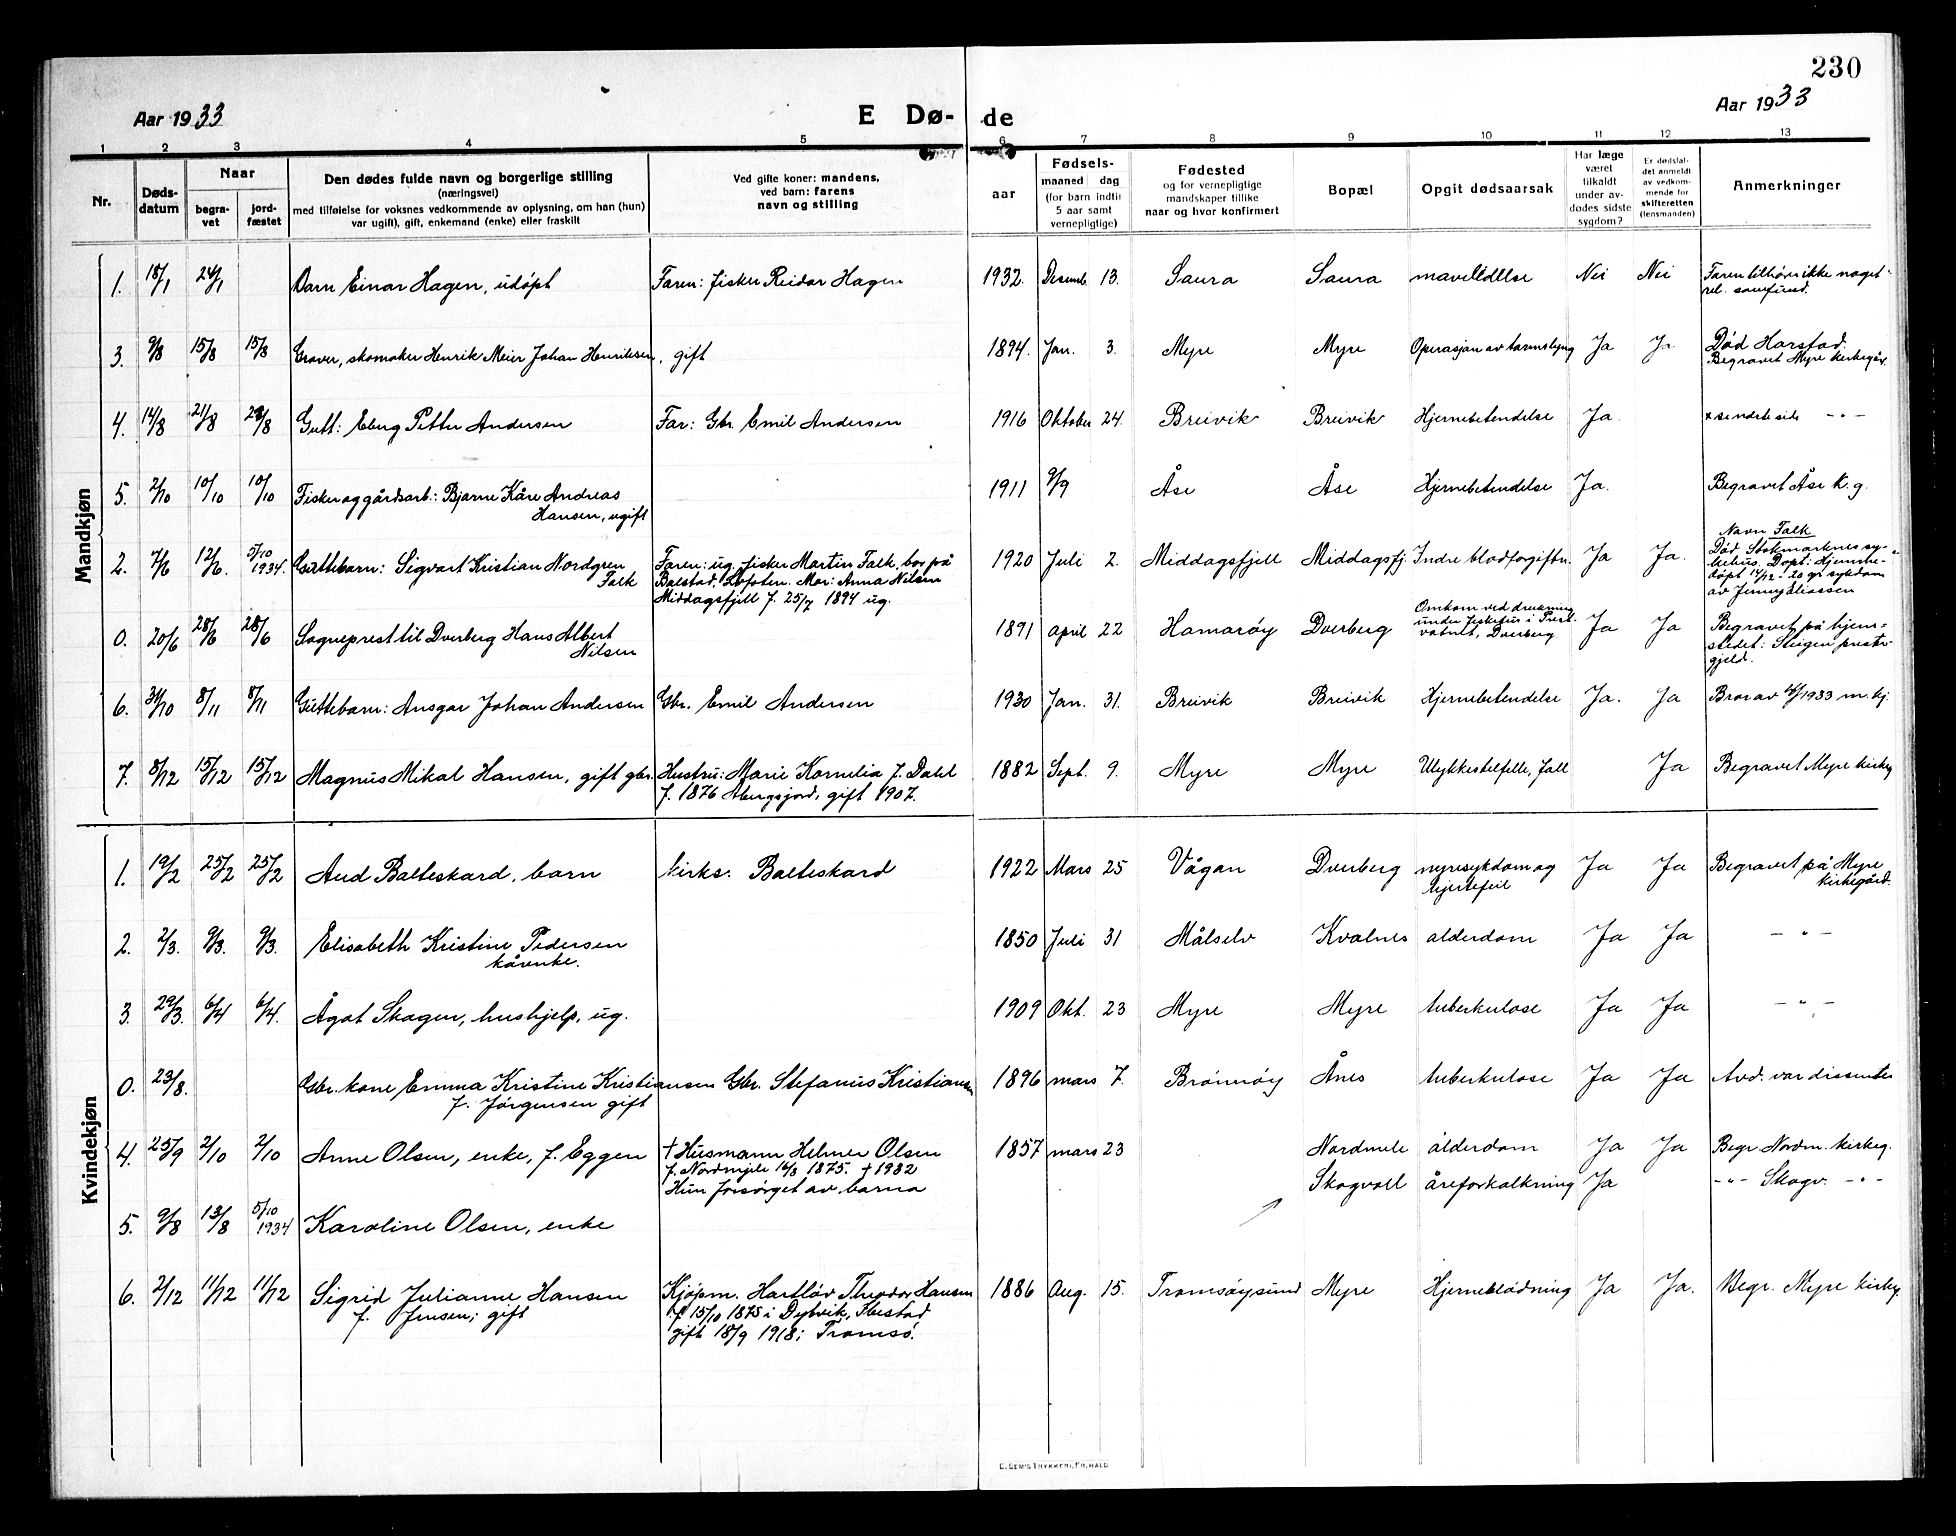 230
Aar 1933
E Dø- de
Aar 1933
1 2 3 4 5 6 7 8 9 10 11 12 13
Nr.
Døds-
datum
Naar
begra-
vet
jord-
fæstet
Den dødes fulde navn og borgerlige stilling
(næringsvei)
med tilføielse for voksnes vedkommende av oplysning, om han (hun)
var ugift, gift, enkemand (enke) eller fraskilt
Ved gifte koner: mandens,
ved barn: farens
navn og stilling
aar
Fødsels-
maaned dag
(for barn indtil
5 aar samt
vernepligtige)
Fødested
og for vernepligtige
mandskaper tillike
naar og hvor konfirmert
Bopæl
Opgit dødsaarsak
Har læge
været
tilkaldt
under av-
dødes sidste
sygdom?
Er dødsfal-
det anmeldt
av vedkom-
mende for
skifteretten
(lensmanden)
Anmerkninger
Mandkjøn
1. 18/1 24/1 Barn Einar Hagen, udöpt Faren: fisker Reidar Hagen 1932. Desemb. 13. Saura Saura mavelidelse Nei Nei Faren tilhörer ikke noget
rel. samfund.
3. 9/8 15/8 15/8 Graver, skomaker Henrik Meier Johan Henriksen, gift 1894. Jan. 3. Myre Myre Operasjon av tarmslyng Ja Ja Död Harstad.
Begravet Myre kirkegår.
4. 14/8 21/8 /8 Gutt: Petter Andersen Far: Gbr. Emil Andersen 1916 Oktober 24. Breivik Breivik Hjernebetendelse Ja. -"-
5. 2/10 10/10 10/10 Fisker og gårdsarb.: Bjarne Kåre Andreas
Hansen, ugift 1911 9/9 Åse Åse Hjernebetendelse Ja. Begravet Åse k. g.
2. 7/6 12/6. 5/10
1934. Guttebarn: Sigvart Kristian Nordgren
Falk Faren: ug. fisker Martin Falk, bor på
Balstad, Lofoten. Mor: Anna Nilsen
Middagsfjell f. 25/7 1894 ug. 1920 Juli 2. Middagsfjell Middagsfj. Indre blodforgiftn. Ja Ja. Navn Falk
Död Stokmarknes sy-
kehus. Döpt: Hjemme-
döpt 14/12-20 gr. sykdom
av Jenny Eliassen
0. 20/6 28/6 28/6 Sogneprest til Dverberg Hans Albert
Nilsen 1891 april 22 Hamaröy Dverberg Omkom ved drukning
under fisketur i
vatnet, Dverberg Ja Ja Begravet på hjem-
stedet: Steigen preste-
gjeld.
6. 31/10 8/11 8/11 Guttebarn: Ansgar Johan Andersen Gbr. Emil Andersen 1930 Jan. 31. Breivik Breivik Hjernebetendelse Ja. Ja Bror av 4/1933 m. kj.
7. 8/12 15/12 15/12 Magnus Mikal Hansen, gift gbr. Hustru: Marie Kornelia f. Dahl
f. 1876 , gift 1907. 1882 Sept. 9. Myre Myre Ulykkestilfelle, fall Ja Begravet Myre kirkeg
Kvindekjøn
1. 19/2 25/2 25/2 Aud Balteskard, barn Kirks. Balteskard 1922 Mars 25 Vågan Dverberg nyresykdom og
hjertefeil Ja Ja Begravet på Myre
kirkegård.
2. 2/3. 9/3. 9/3. Elisabeth Kristine Pedersen
kårenke. 1850 Juli 31 Målselv Kvalnes alderdom Ja Ja -"-
3. 29/3. 6/4 6/4. Ågot Skogen, hushjelp, ug. 1909 Okt. 23 Myre Myre tuberkulose Ja Ja -"-
0. 23/8. Gbr. kone Emma Kristine Kristiansen
f. Jörgensen gift Gbr. Stefanus Kristiansen 1896 mars 7. Brönnöy Ånes tuberkulose Ja Ja Avd. var dissenter
4. 25/9 2/10 2/10 Anne Olsen, enke, f. Eggen † Husmann Helmer Olsen
f. Nordmjele 16/8 1875. † 1932
Hun forsörget av barna 1857 mars 23 Nordmele alderdom Ja Ja Begr. Nordm. kirkeg.
5. 9/8 13/8 5/10
1934 Karoline Olsen, enke Skogvoll åreforkalkning Ja -"- Skogv. -"-
6. 2/12 11/12 11/12 Sigrid Julianne Hansen
f. Jensen; gift Kjöpm. Hartlöv Theodor Hansen
f. 15/10 1875 i Dybvik, Ibestad
gift 18/9 1918; Tromsö. 1886 Aug. 15. Tromsöysund Myre Hjerneblödning Ja Ja. Begr. Myre kirkeg.
E. SEM'S TRYKKERI, FR.HALD